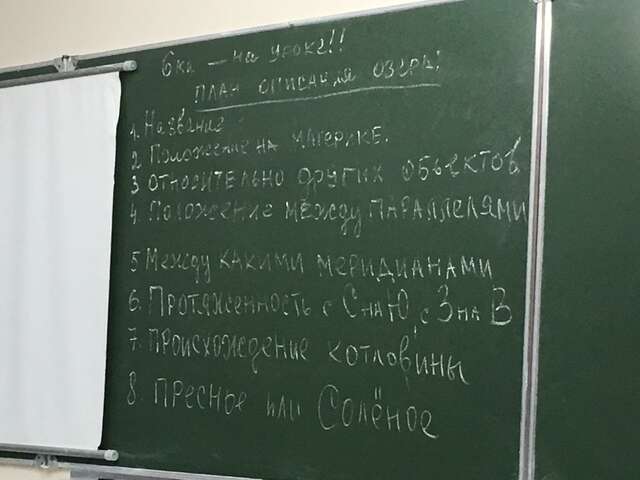 6 кл — на уроке!!
План описания озера:
1. Название
2 Положение на материке.
3 относительно других объектов
4. Положение между параллелями
5 Между какими меридианами
6. Протяженность с С на Ю, с З на В
7. Происхождение котловины
8. Пресное или Солёное